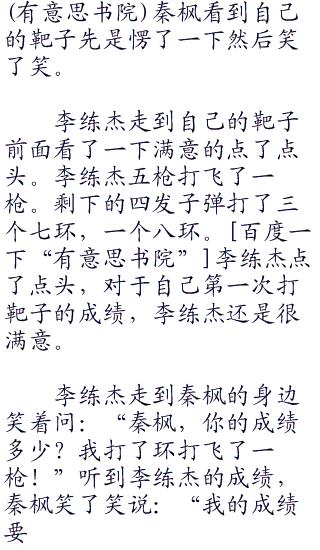 (有意思书院)秦枫看到自己
的靶子先是愣了一下然后笑
了笑。
李练杰走到自己的靶子
前面看了一下满意的点了点
头。李练杰五枪打飞了一
枪。剩下的四发子弹打了三
个七环，一个八环。[百度一
下“有意思书院”]李练杰点
了点头，对于自己第一次打
靶子的成绩，李练杰还是很
满意。
李练杰走到秦枫的身边
笑着问：“秦枫，你的成绩
多少？我打了环打飞了一
枪！”听到李练杰的成绩，
秦枫笑了笑说：“我的成绩
要